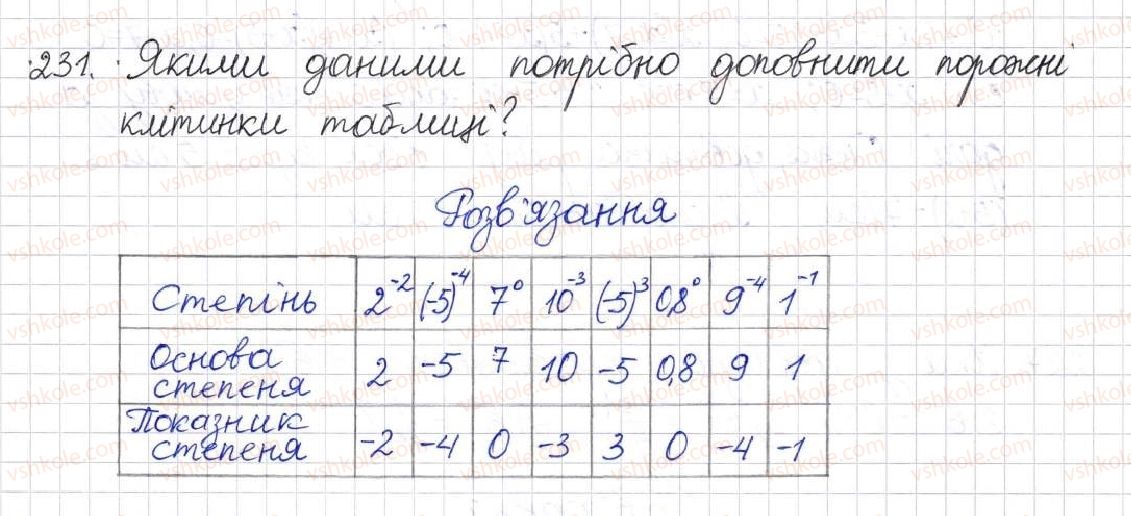 231. Якими даними потрібно доповнити порожні
клітинки таблиці?
Розв'язання
Степінь 2⁻² (-5)⁻⁴ 7⁰ 10⁻³ (-5)³ 0,8⁰ 9⁻⁴ 1⁻¹
Основа степеня 2 -5 7 10 -5 0,8 9 1
Показник степеня -2 -4 0 -3 3 0 -4 -1